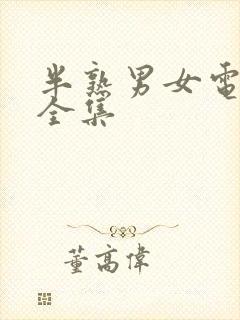 半熟男女電
全集
董高偉